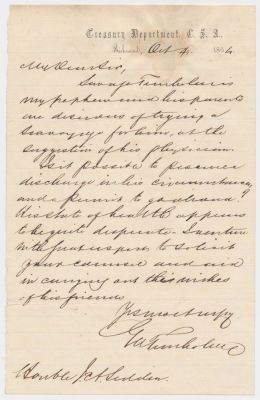 Treasury Department, C. S. A.,
Richmond, Oct 4, 1864
My Dear Sir,
George Trenholm is
my nephew and his parents
are desirous of trying a
Sea voyage for him, at the
suggestion of his physician.
Is it possible to procure
discharge in his circumstances
and a permit to go abroad.
His state of health appears
to be quite desperate. I venture
with great respect to solicit
your counsel and aid
in carrying out the wishes
of his friends
Yrs most truly
G A Trenholm
Honble J A Seddon